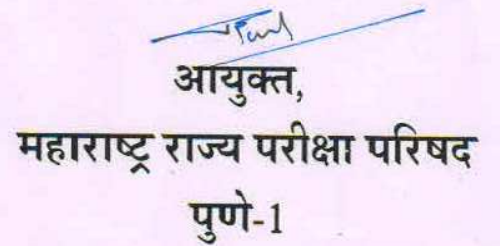 आयुक्त,
महाराष्ट्र राज्य परीक्षा परिषद
पुणे-1